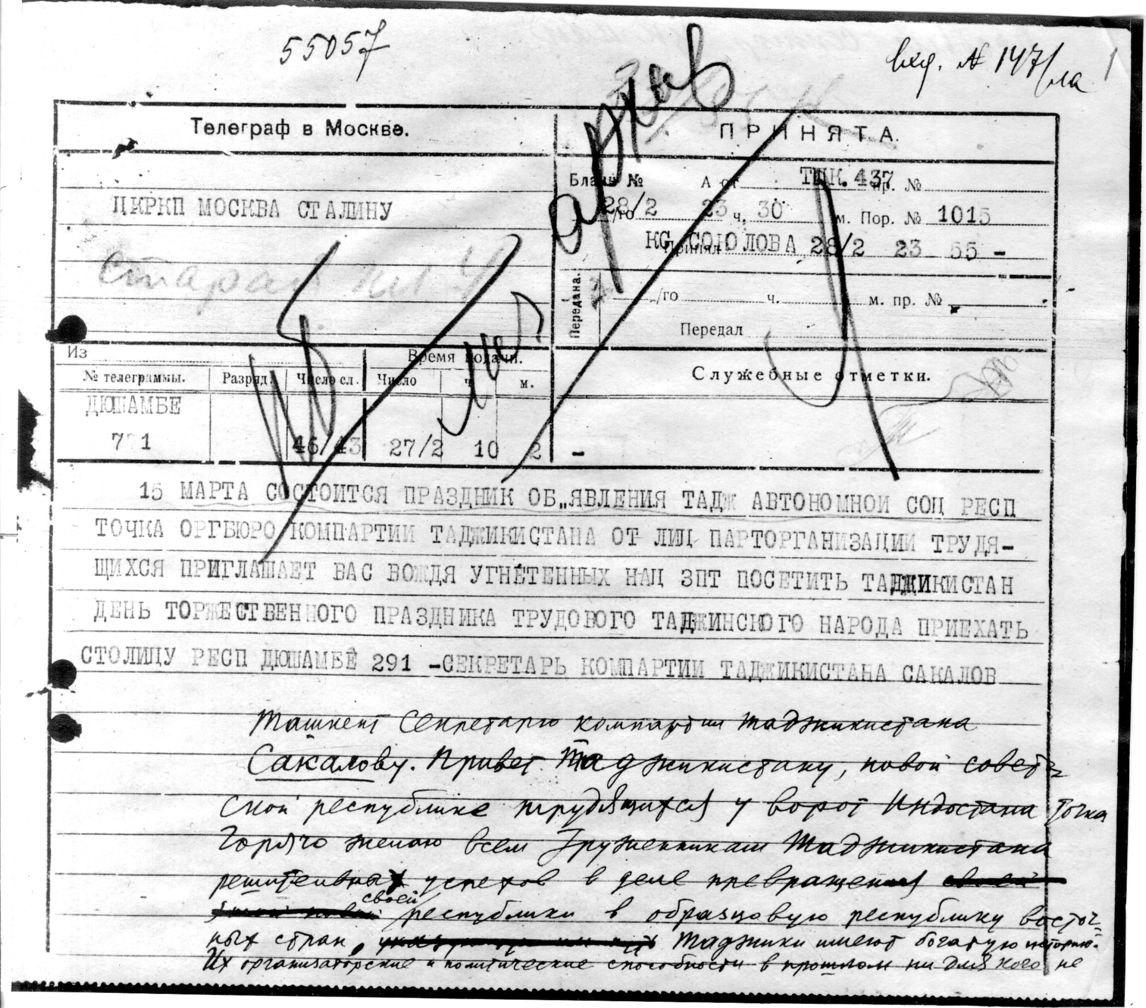 55057
вхд. № 147/ла
архив
Телеграф в Москве.
ПРИНЯТА.
Бланк № А от ТЩК. 437 пр. №
ЦКРКП МОСКВА СТАЛИНУ
28/2 /го 23 ч. 30 м. Пор. № 1015
Принял 28/2 23 55 -
старая
Передана.
/го ч. м. пр. №
Передал
Из
Время подачи.
Служебные отметки.
№ телеграммы. Разряд. Число сл. Число ч. м.
ДЮШАМБЕ
46/43 27/2 10 2 -
15 МАРТА СОСТОИТСЯ ПРАЗДНИК ОБ„ЯВЛЕНИЯ ТАДЖ АВТОНОМНОИ СОЦ РЕСП
ТОЧКА ОРГБЮРО КОМПАРТИИ ТАДЖИКИСТАНА ОТ ЛИЦ ПАРТОРГАНИЗАЦИИ ТРУДЯ-
ЩИХСЯ ПРИГЛАШАЕТ ВАС ВОЖДЯ УГНЕТЕННЫХ НАЦ ЗПТ ПОСЕТИТЬ ТАДЖИКИСТАН
ДЕНЬ ТОРЖЕСТВЕННОГО ПРАЗДНИКА ТРУДОВОГО ТАДЖИНСКОГО НАРОДА ПРИЕХАТЬ
СТОЛИЦУ РЕСП ДЮШАМБЕ 291 -СЕКРЕТАРЬ КОМПАРТИИ ТАДЖИКИСТАНА САКАЛОВ
Ташкент Секретарю компартии Таджикистана
Сакалову. Привет Таджикистану, новой совет-
ской республике трудящихся у ворот Индостана Точка
Горячо желаю всем Труженникам Таджикистана
успехов в деле превращения своей
своей республики в образцовую республику восточ-
ных стран. Таджики имеют богатую историю.
Их организаторские и политические способности в прошлом ни для кого не